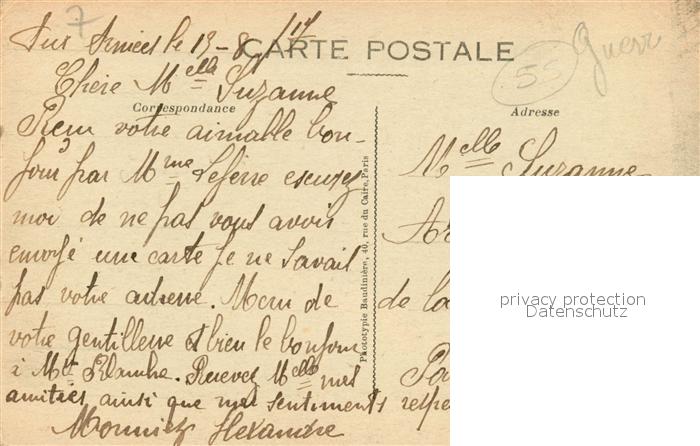 7
le 13-8-17
CARTE POSTALE
55
Guerre
Chère Melle Suzanne
Correspondance
Adresse
Reçu votre aimable bon-
jour par Mme Lefevre escusez
moi de ne pas vous avoir
envoyé une carte je ne savait
pas votre adresse. Merci de
votre gentillesse et bien le bonjour
à Blanche. Recevez Melle mes
amitiés ainsi que mes sentiments respe
Alexandre
Phototypie Baudinière, 40, rue du Caire, Paris
Melle Suzanne
de la
privacy protection
Datenschutz